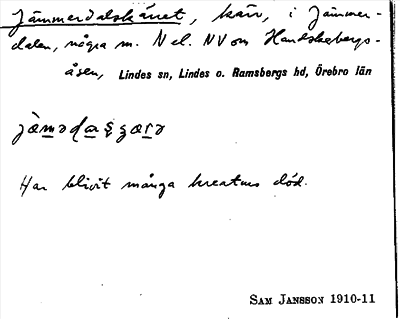 Jämmerdalskärret, kärr, i Jämmer-
dalen, några m. N el. NV om Handskebergs-
åsen, Lindes sn, Lindes o. Ramsbergs hd, Örebro län
Har blivit många kreaturs död.
SAM JANSSON 1910-11